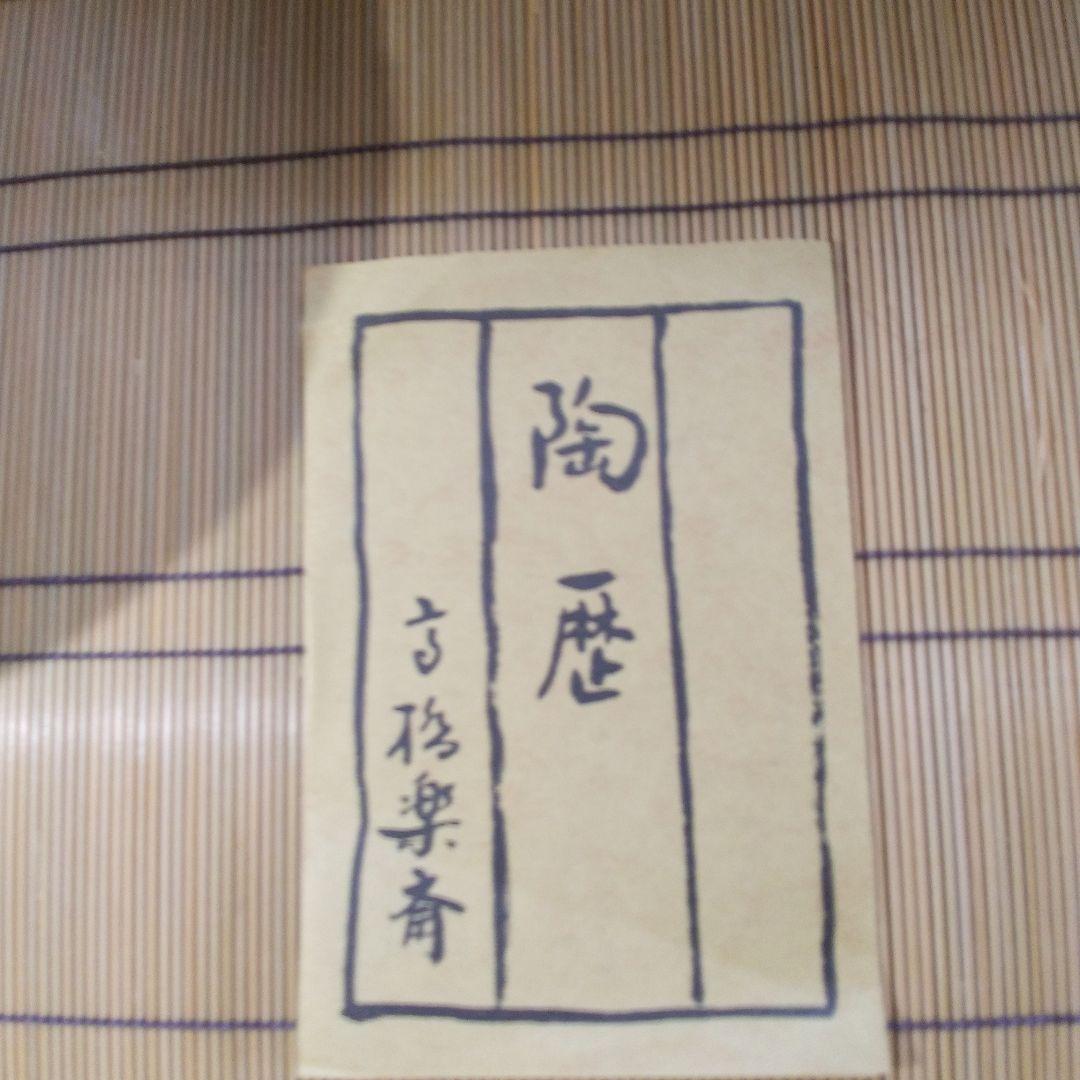 陶歴
高橋楽斎